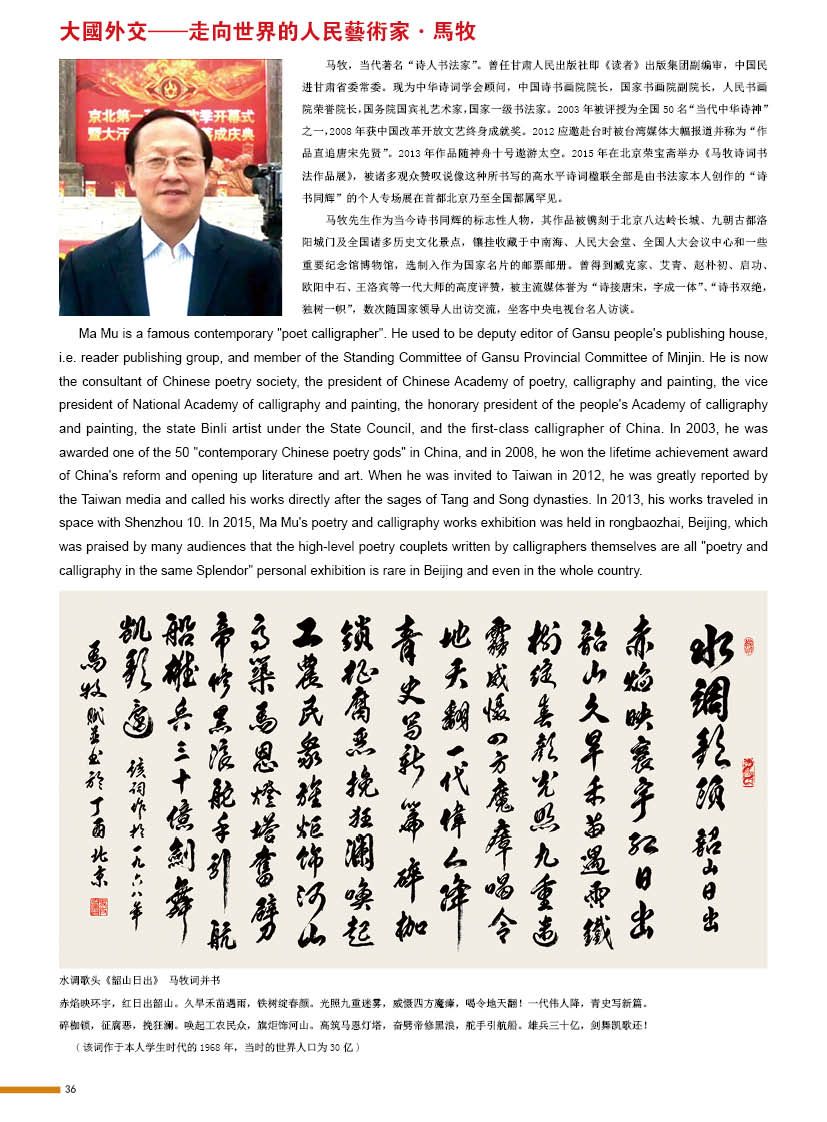 大國外交——走向世界的人民藝術家·馬牧
京北第一
季开幕式
暨大汗
落成庆典
马牧，当代著名“诗人书法家”。曾任甘肃人民出版社即《读者》出版集团副编审，中国民
进甘肃省委常委。现为中华诗词学会顾问，中国诗书画院院长，国家书画院副院长，人民书画
院荣誉院长，国务院国宾礼艺术家，国家一级书法家。2003 年被评授为全国 50 名“当代中华诗神”
之一，2008 年获中国改革开放文艺终身成就奖。2012 应邀赴台时被台湾媒体大幅报道并称为“作
品直追唐宋先贤”。2013 年作品随神舟十号遨游太空。2015 年在北京荣宝斋举办《马牧诗词书
法作品展》，被诸多观众赞叹说像这种所书写的高水平诗词楹联全部是由书法家本人创作的“诗
书同辉”的个人专场展在首都北京乃至全国都属罕见。
马牧先生作为当今诗书同辉的标志性人物，其作品被镌刻于北京八达岭长城、九朝古都洛
阳城门及全国诸多历史文化景点，镶挂收藏于中南海、人民大会堂、全国人大会议中心和一些
重要纪念馆博物馆，选制入作为国家名片的邮票邮册。曾得到臧克家、艾青、赵朴初、启功、
欧阳中石、王洛宾等一代大师的高度评赞，被主流媒体誉为“诗接唐宋，字成一体”、“诗书双绝，
独树一帜”，数次随国家领导人出访交流，坐客中央电视台名人访谈。
Ma Mu is a famous contemporary "poet calligrapher". He used to be deputy editor of Gansu people's publishing house,
i.e. reader publishing group, and member of the Standing Committee of Gansu Provincial Committee of Minjin. He is now
the consultant of Chinese poetry society, the president of Chinese Academy of poetry, calligraphy and painting, the vice
president of National Academy of calligraphy and painting, the honorary president of the people's Academy of calligraphy
and painting, the state Binli artist under the State Council, and the first-class calligrapher of China. In 2003, he was
awarded one of the 50 "contemporary Chinese poetry gods" in China, and in 2008, he won the lifetime achievement award
of China's reform and opening up literature and art. When he was invited to Taiwan in 2012, he was greatly reported by
the Taiwan media and called his works directly after the sages of Tang and Song dynasties. In 2013, his works traveled in
space with Shenzhou 10. In 2015, Ma Mu's poetry and calligraphy works exhibition was held in rongbaozhai, Beijing, which
was praised by many audiences that the high-level poetry couplets written by calligraphers themselves are all "poetry and
calligraphy in the same Splendor" personal exhibition is rare in Beijing and even in the whole country.
水調歌頭 韶山日出
赤焰映寰宇紅日出
韶山久旱禾苗遇雨鐵
樹綻春顏光照九重迷
霧威懾四方魔瘴喝令
地天翻一代偉人降
青史寫新篇碎枷
鎖征腐惡挽狂瀾喚起
工農民衆旌炬飾河山
高築馬恩燈塔奮劈
帝修黑浪舵手引航
船雄兵三十億劍舞
凱歌還 該詞作於一九六八年
馬牧賦並書於丁酉北京
水调歌头《韶山日出》 马牧词并书
赤焰映环宇，红日出韶山。久旱禾苗遇雨，铁树绽春颜。光照九重迷雾，威慑四方魔瘴，喝令地天翻！一代伟人降，青史写新篇。
碎枷锁，征腐恶，挽狂澜。唤起工农民众，旗炬饰河山。高筑马恩灯塔，奋劈帝修黑浪，舵手引航船。雄兵三十亿，剑舞凯歌还！
（该词作于本人学生时代的 1968 年，当时的世界人口为 30 亿）
36